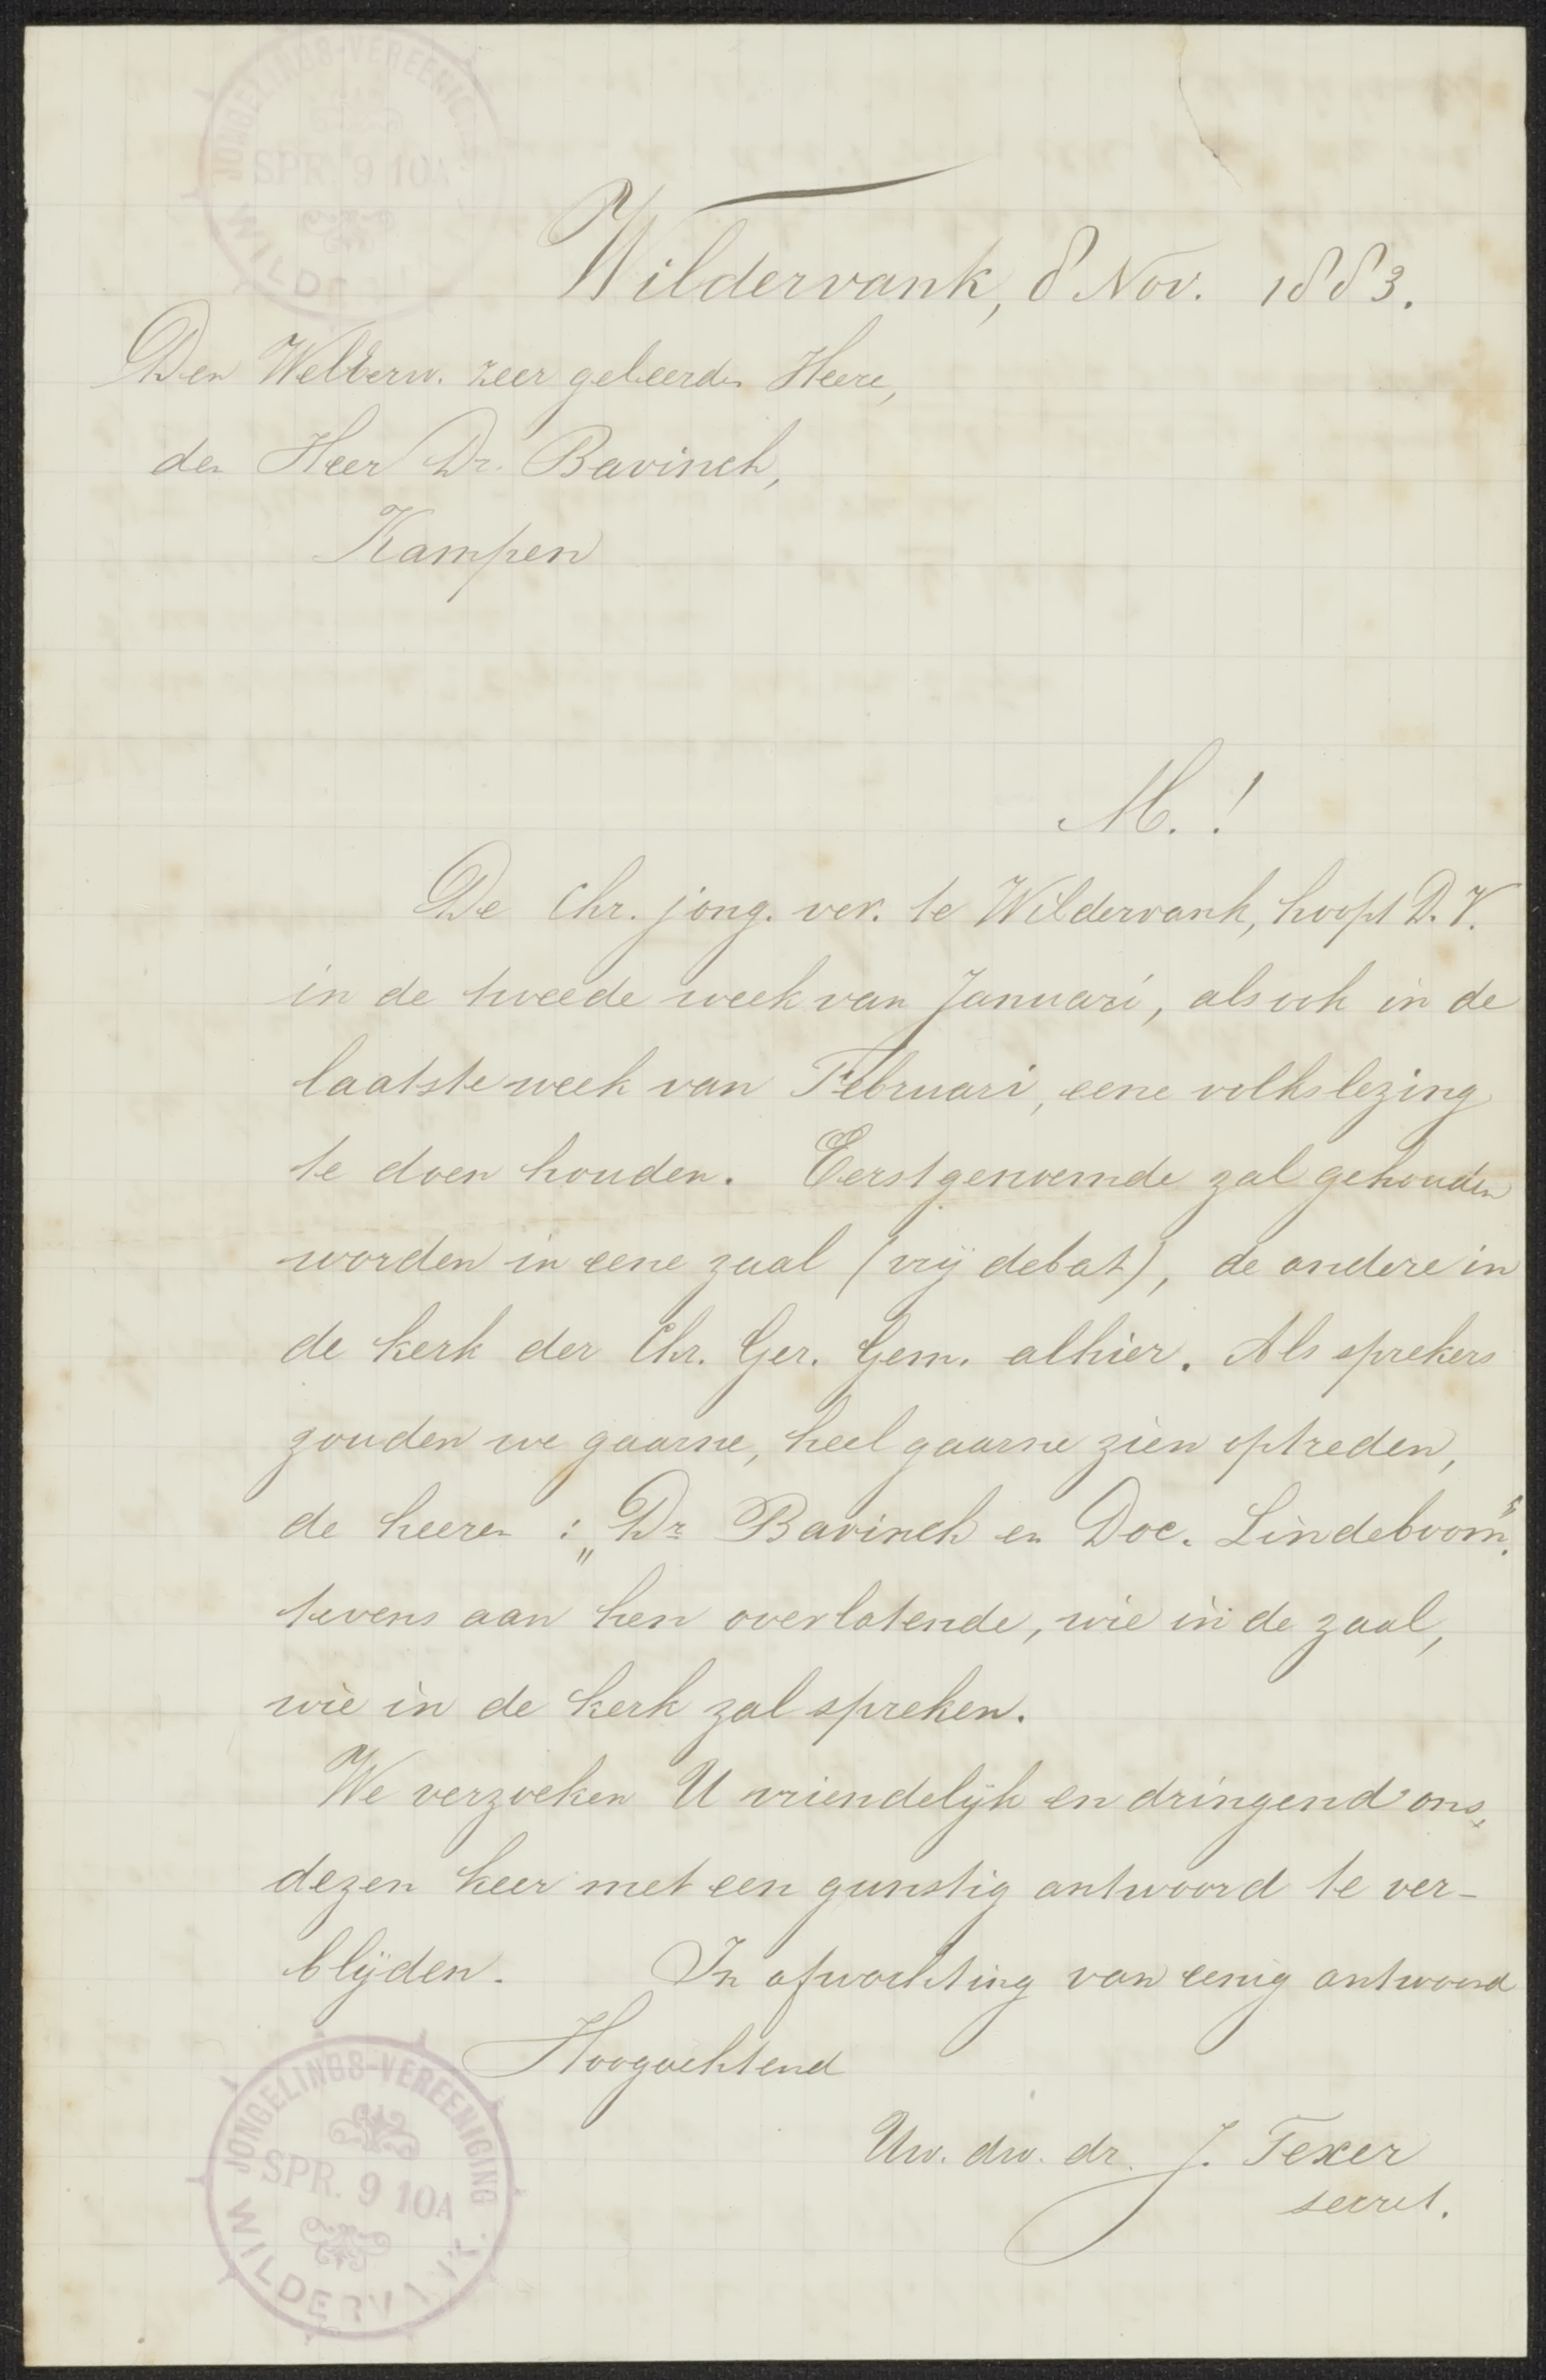 JONGELINGS-VEREENIG
SPR. 9 10A
WILDE
Wildervank, 8 Nov. 1883.
Den WelEerw. zeer geleerden Heere,
den Heer Dr. Bavinck,
Kampen
M.!
De Chr. jong. ver. te Wildervank, hoopt D.V.
in de tweede week van Januari, als ook in de
laatste week van Februari, eene volkslezing
te doen houden. Eerstgenoemde zal gehouden
worden in eene zaal (vrij debat), de andere in
de kerk der Chr. Ger. Gem. alhier. Als sprekers
zouden we gaarne, heel gaarne zien optreden,
de heeren : „Dr Bavinck en Doc. Lindeboom".
tevens aan hen overlatende, wie in de zaal,
wie in de kerk zal spreken.
We verzoeken U vriendelijk en dringend ons,
dezen keer met een gunstig antwoord te ver-
blijden. In afwachting van eenig antwoord
Hoogachtend
Uw. dw. dr. J. Texer
secret.
JONGELINGS-VEREENIGING
SPR. 9 10A
WILDERVANK